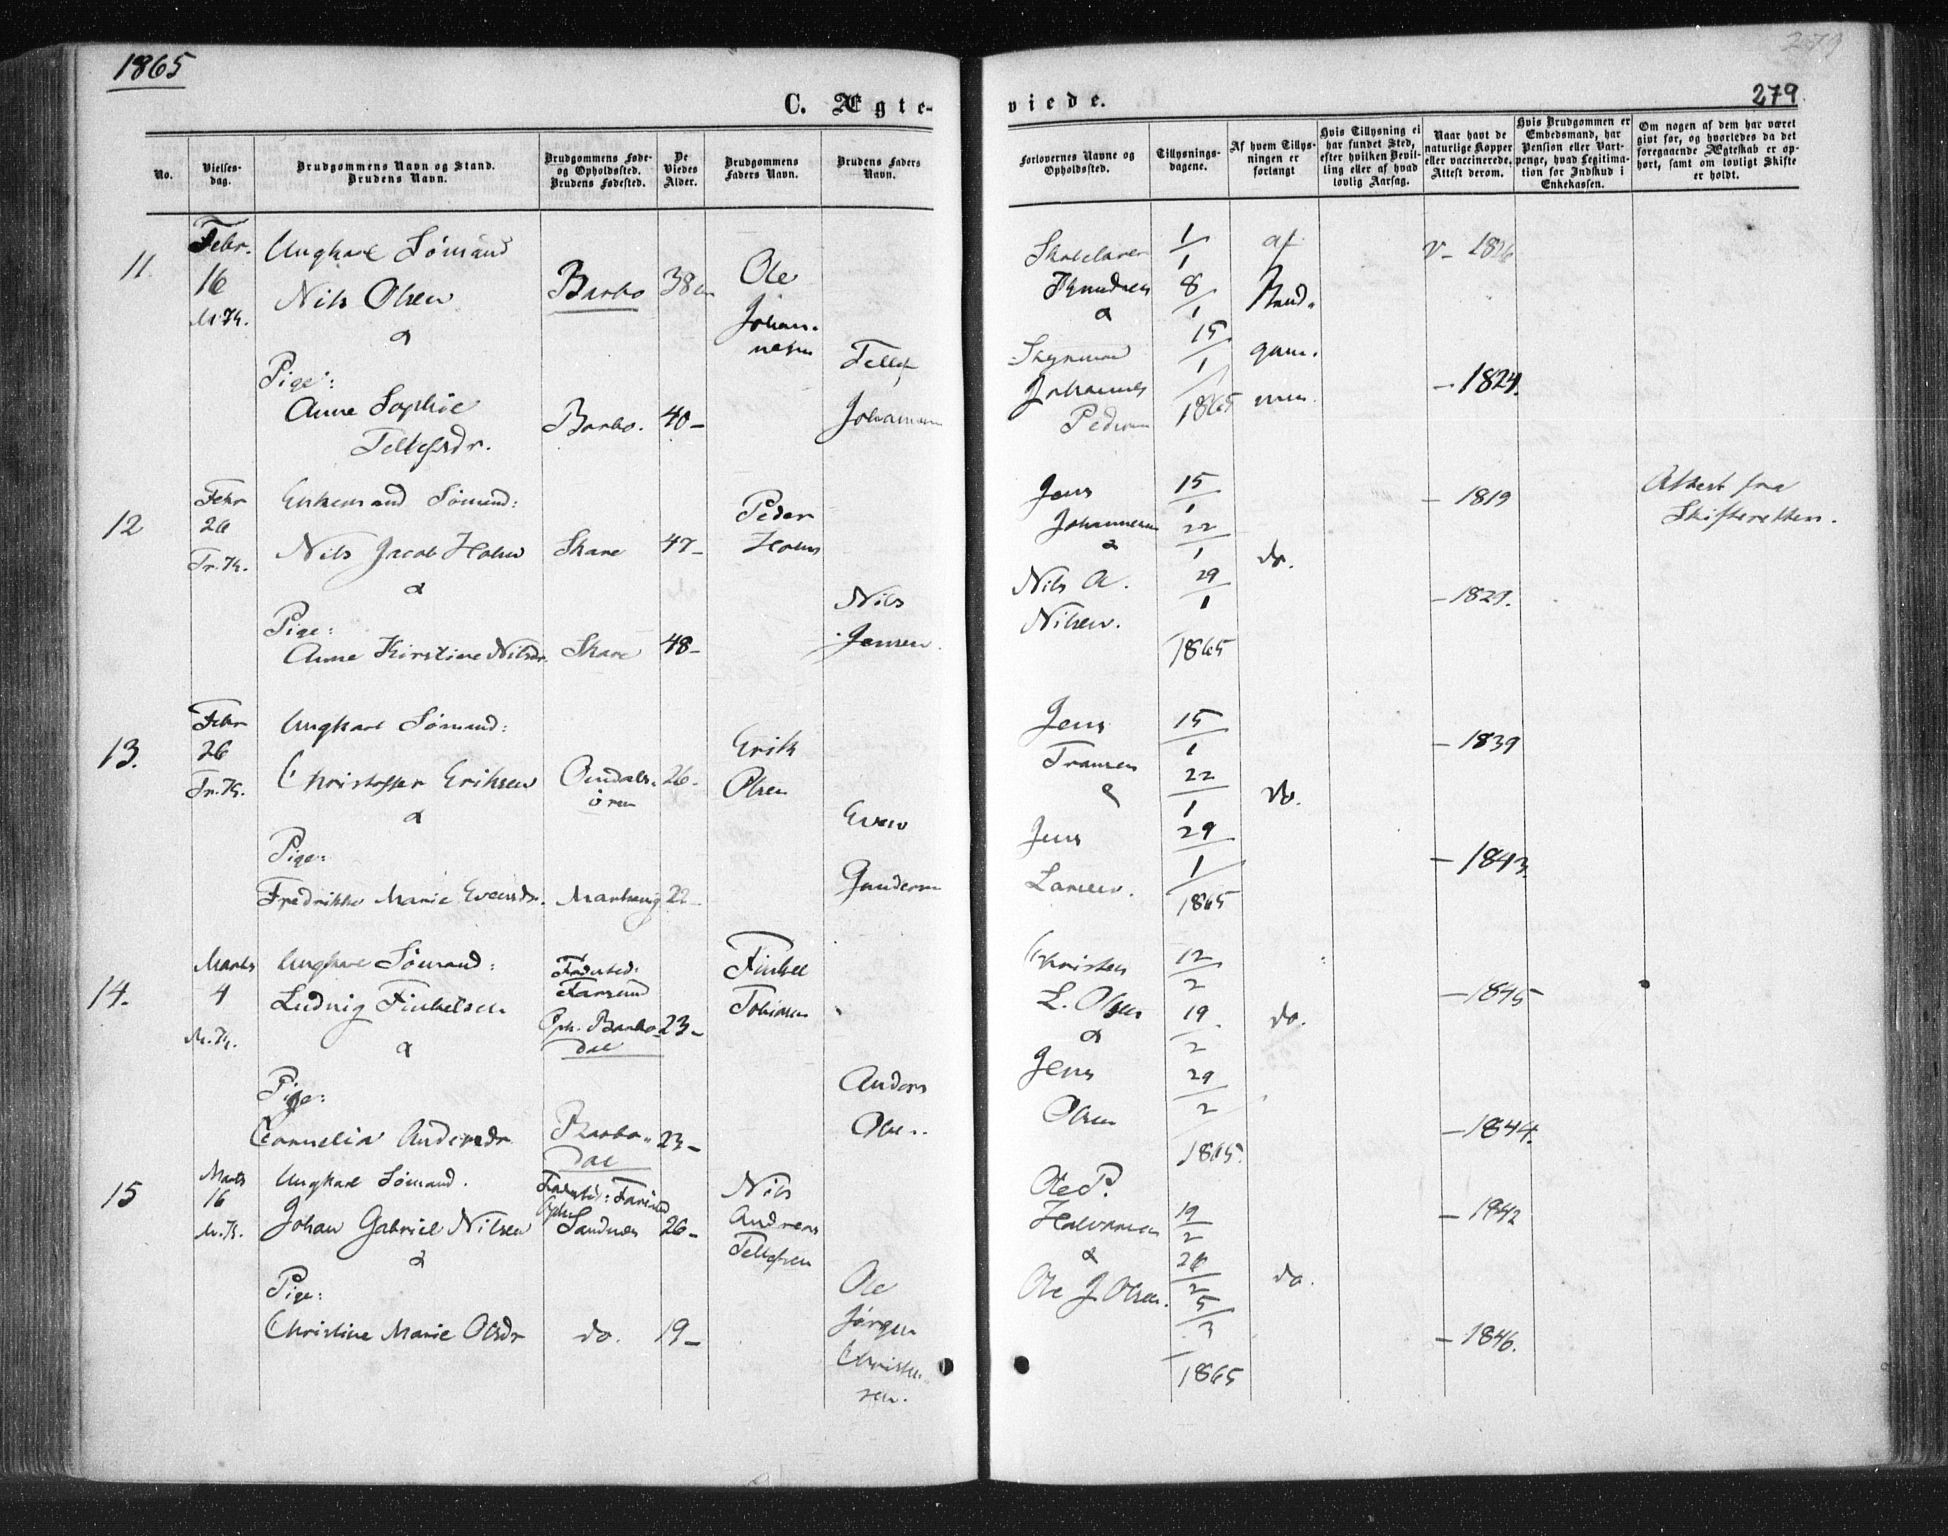 1865
279
279
C. Ægte-
viede.
No.
Vielses-
dag.
Brudgommens Navn og Stand.
Brudens Navn.
Brudgommens Føde-
og Opholdssted.
Brudens Fødested.
De
Viedes
Alder.
Brudgommens
Faders Navn.
Brudens Faders
Navn.
Forlovernes Navne og
Opholdssted.
Tillysnings-
dagene.
Af hvem Tillys-
ningen er
forlangt
Hvis Tillysning ei
har fundet Sted,
efter hvilken Bevil-
ling eller af hvad
lovlig Aarsag.
Naar havt de
naturlige Kopper
eller vaccinerede.
Attest derom.
Hvis Brudgommen er
Embedsmand, har
Pension eller Vart-
penge, hvad Legitima-
tion for Indskud i
Enkekassen.
Om nogen af dem har været
gift før, og hvorledes da det
foregaaende Ægteskab er op-
hørt, samt om lovligt Skifte
er holdt.
11.
Febr.
16
M.K.
Ungkarl Sømand
Nils Olsen
&
Pige:
Anne Sophie
Tellefsdr.
Barbo
Barbo.
38
40-
Ole
Johan-
nesen
Tellef
Johannesen
Skolelærer
Knudsen
&
Johannes
Pedersen
1/1
8/1
15/1
1865
af
Brud-
gom-
men.
v- 1826
- 1824.
12
Febr
26
Tr.K.
Enkemand Sømand:
Nils Jacob Holm
&
Pige:
Anne Kirstine Nilsdr.
Skare
Skare
47-
48-
Peder
Holm
Nils
Jensen.
Jens
Johannesen
&
Nils A.
Nilsen.
15/1
22/1
29/1
1865
do.
- 1819
- 1821.
Attest fra
Skifteretten.
13.
Febr
26
Tr.K.
Ungkarl Sømand:
Christoffer Eriksen
&
Pige:
Fredrikke Marie Evensdr.
øren
26-
22-
Erik
Olsen
Even
Gundersen
Jens
Fransen
&
Jens
Larsen.
15/1
22/1
29/1
1865
do.
- 1839
- 1843.
14.
Marts
4
M.K.
Ungkarl Sømand:
Ludvig Finkelsen
&
Pige:
Cornelia Andersdr.
Fødested:
Farsund
Oph. Barbo-
dal
Barbo-
dal
23-
23-
Finkel
Tobiasen
Anders
Olsen.
Christen
L. Olsen
&
Jens
Olsen
12/2
19/2
29/2
1865.
do.
- 1845
- 1844.
15
Marts
16
M.K.
Ungkarl Sømand.
Johan Gabriel Nilsen
&
Pige:
Christine Marie Olsdr
Fødested: Farsund
Oph.
Sandnes
do.
26-
19-
Nils
Andreas
Tellefsen
Ole
Jørgen
Christen-
sen.
Ole P.
Halvorsen
&
Ole J. Olsen.
19/2
26/2
5/3
1865
do.
- 1842
- 1846.